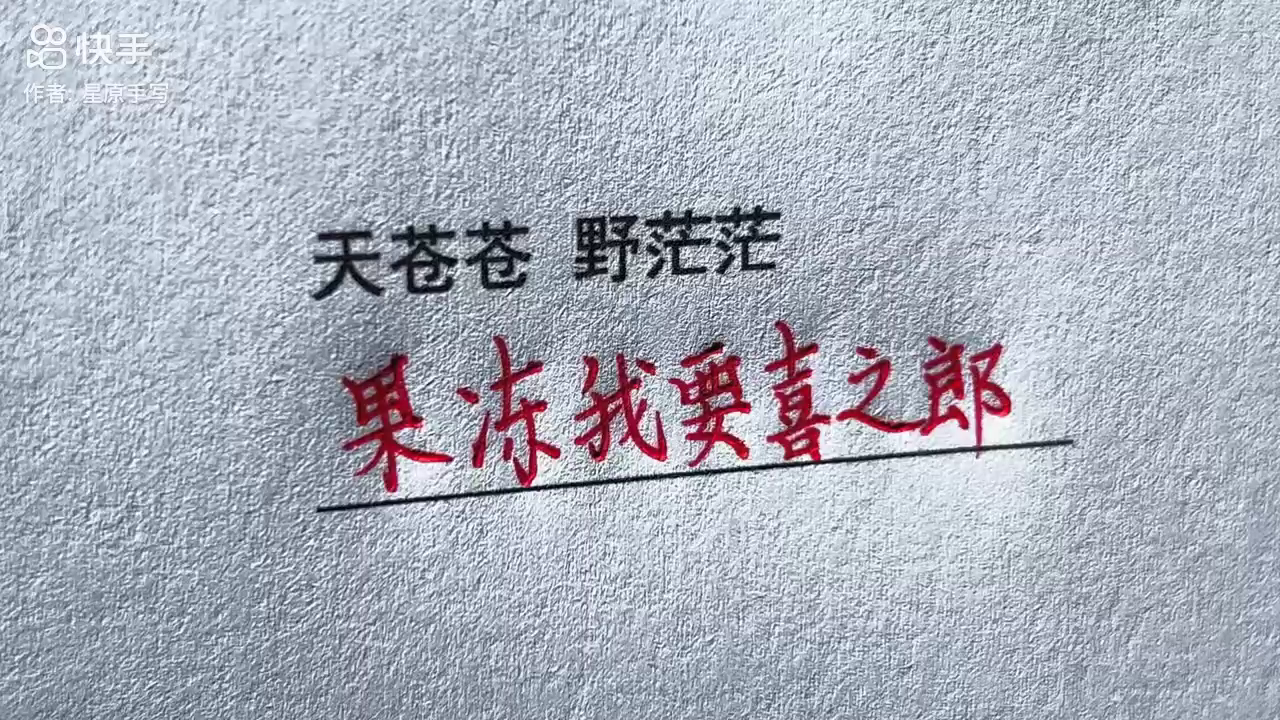 快手
作者: 星原手写
天苍苍 野茫茫
果冻我要喜之郎